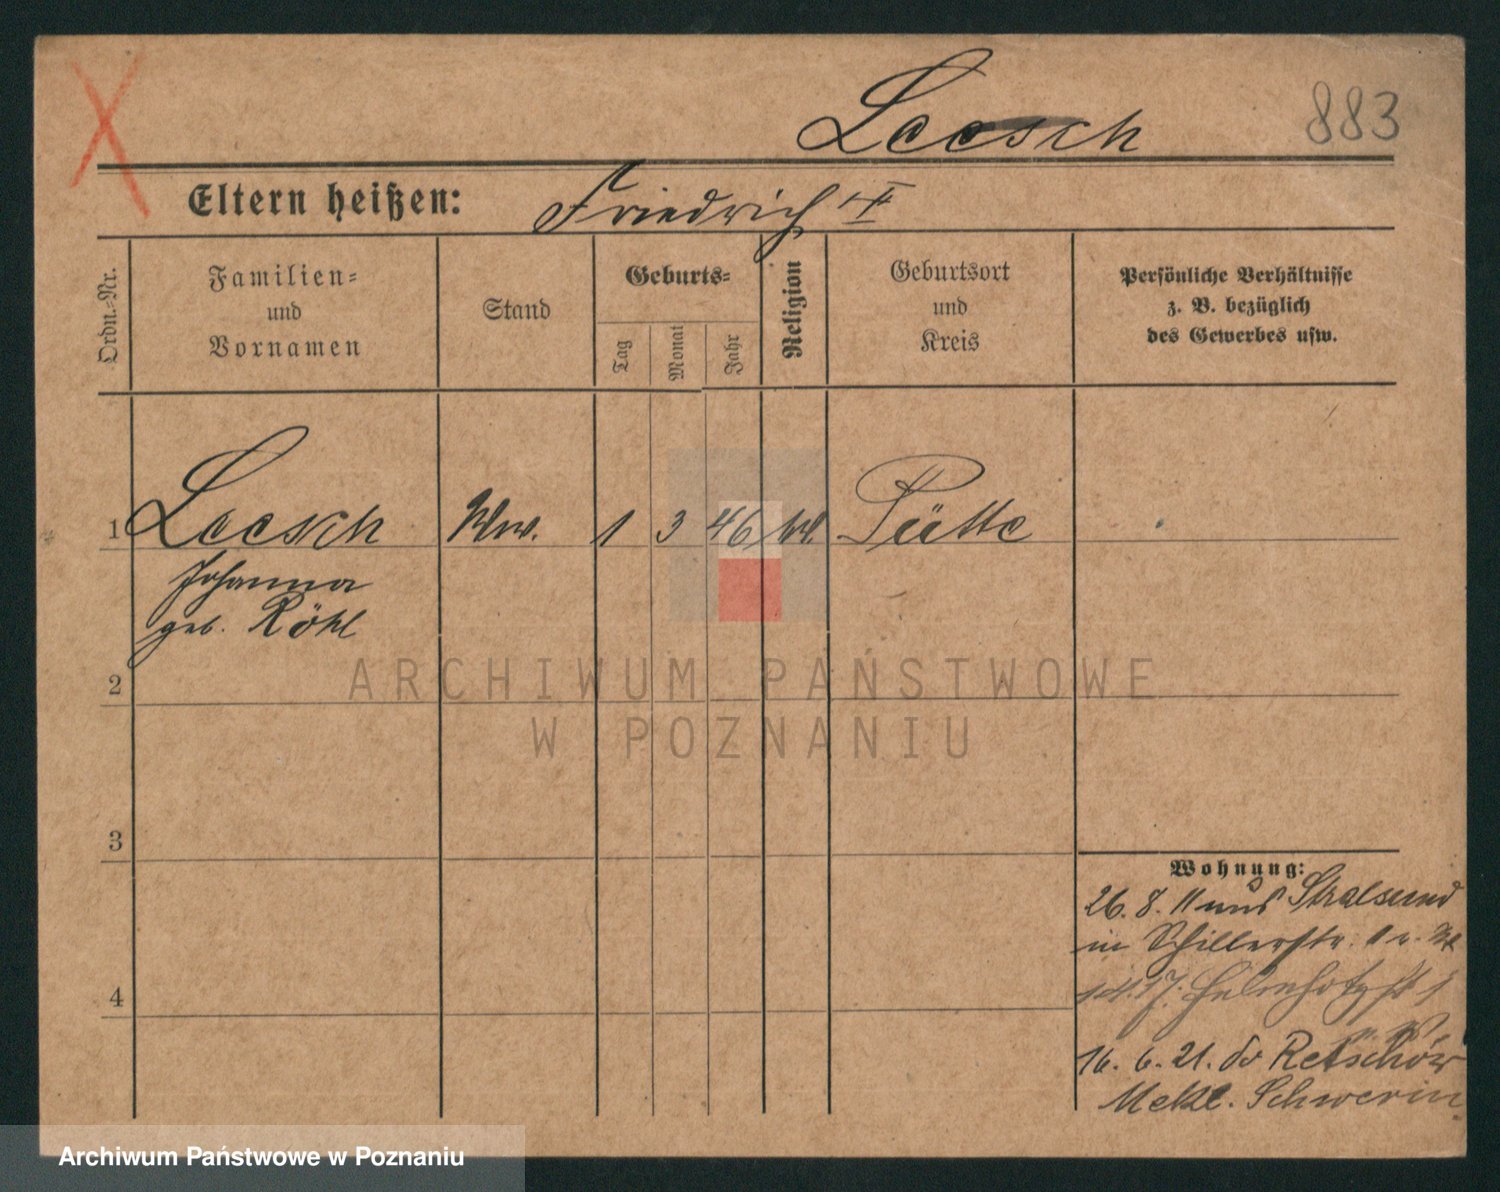 Leesch
883
Eltern heißen: Friedrich
Ordn.-Nr.
Familien-
und
Vornamen
Stand
Geburts-
Tag
Monat
Jahr
Religion
Geburtsort
und
Kreis
Persönliche Verhältnisse
z. B. bezüglich
des Gewerbes usw.
1 Leesch Ww. 1 3 46 Pütte
Johanna
geb. Röhl
2
3
4
Wohnung:
26. 8. 11 aus Stralsund
in Schillerstr.
Helmholtzstr
16. 6. 21. Retschow
Mekl. Schwerin
ARCHIWUM PAŃSTWOWE
W POZNANIU
Archiwum Państwowe w Poznaniu